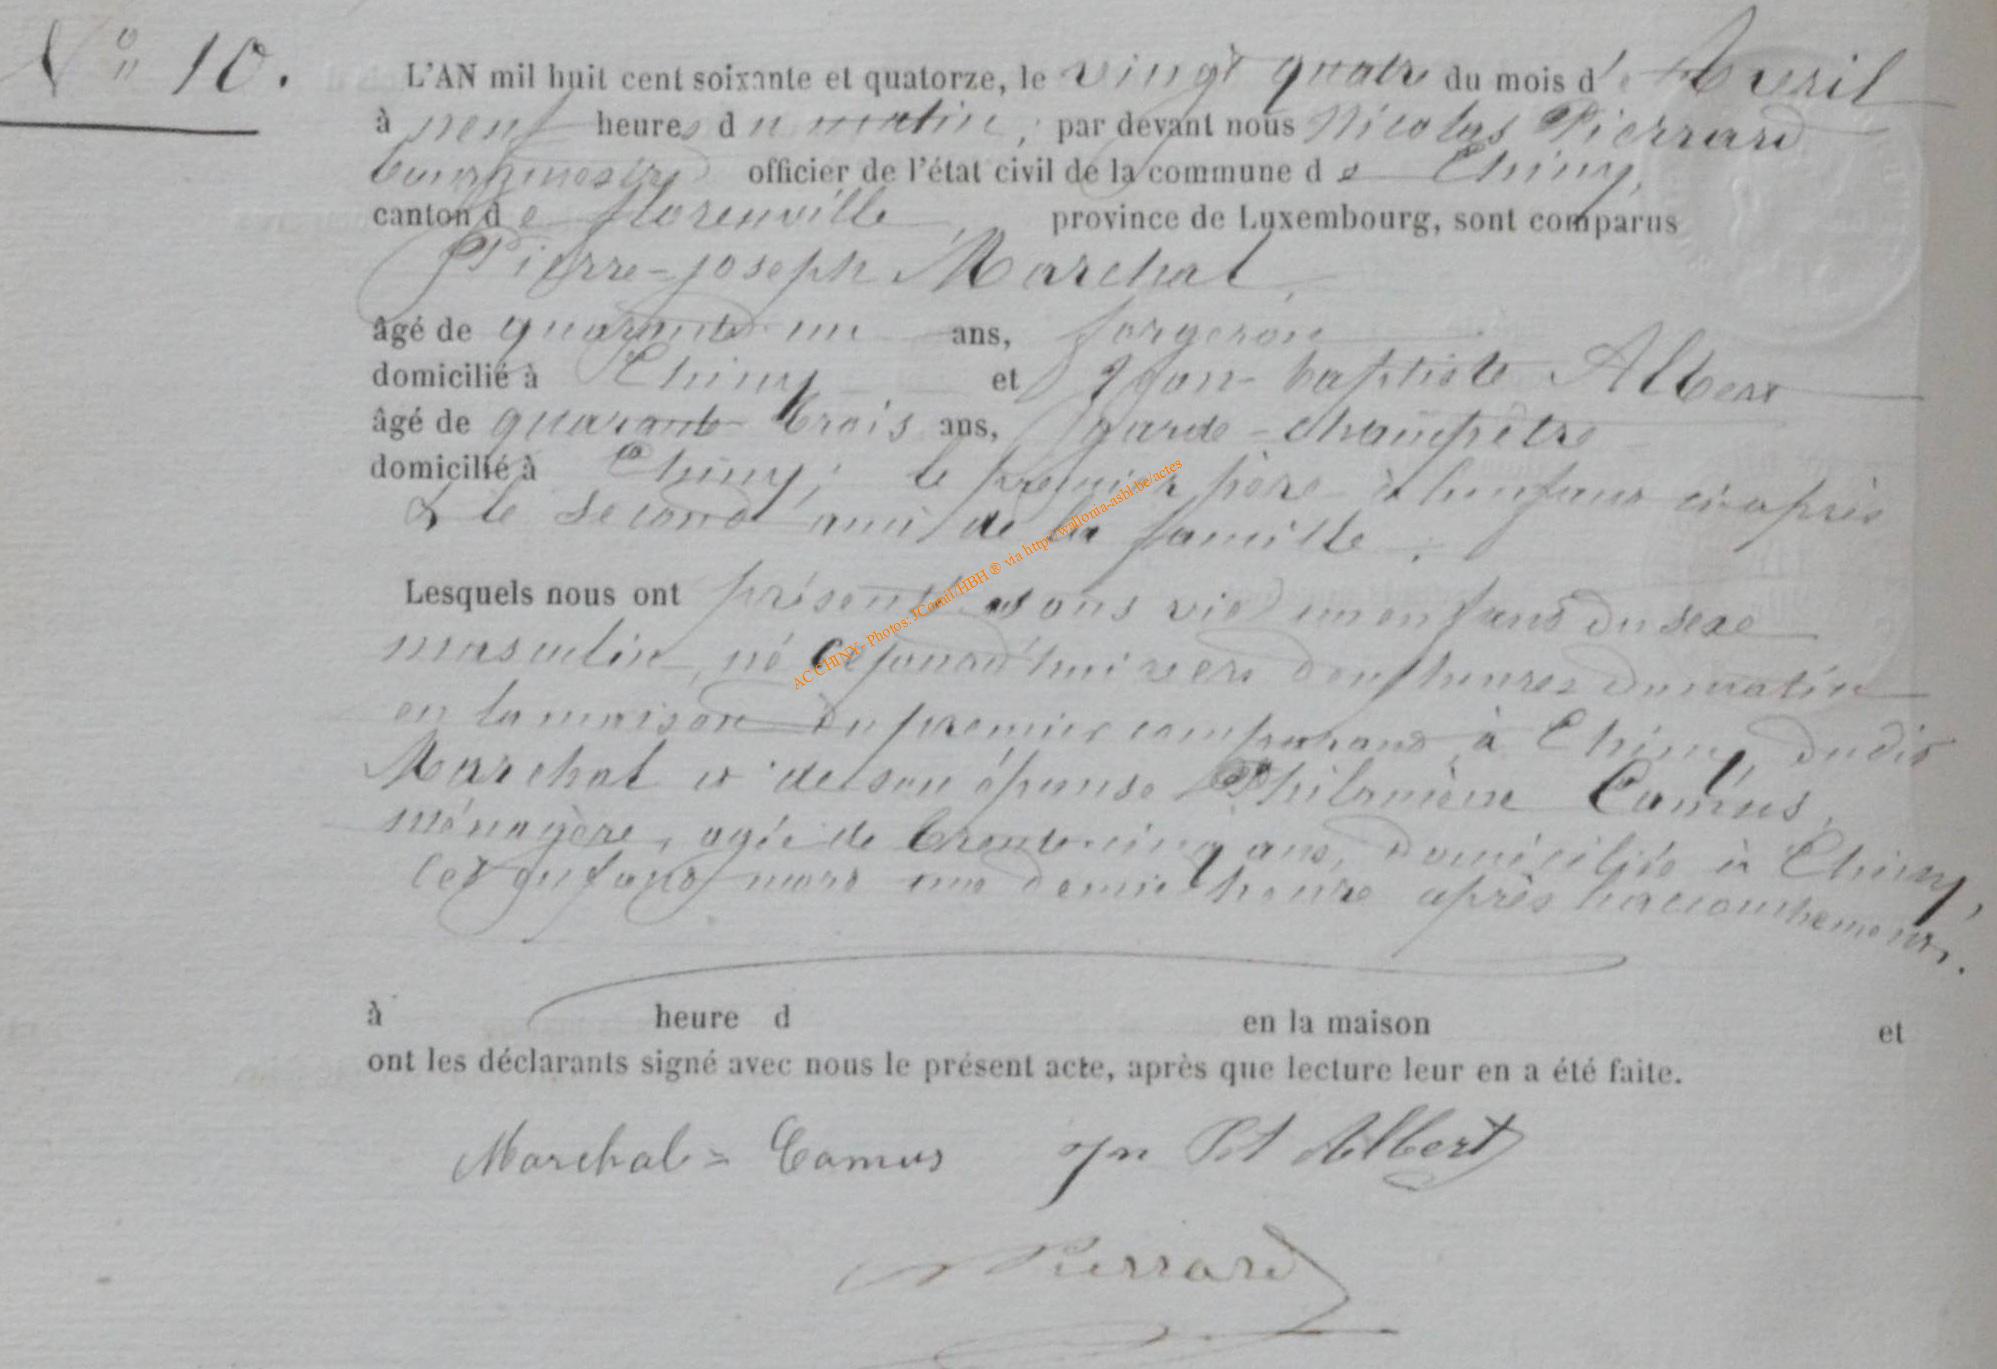 N° 10.
L'AN mil huit cent soixante et quatorze, le vingt quatre du mois d'Avril
à neuf heures du matin, par devant nous Nicolas Pierrard
bourgmestre officier de l'état civil de la commune de Chiny,
canton de Florenville, province de Luxembourg, sont comparus
Pierre-joseph Marchal,
âgé de quarante un ans, forgeron
domicilié à Chiny et Jean-baptiste Albert
âgé de quarante trois ans, garde-champêtre
domicilié à Chiny; le premier père à l'enfant ci-après
& le second ami de la famille.
Lesquels nous ont présenté sans vie un enfant du sexe
masculin, né cejourd'hui vers deux heures du matin
en la maison du premier comparant à Chiny, dudit
Marchal et de son épouse Philomène Camus,
ménagère, agée de trente-cinq ans, domiciliée à Chiny,
cet enfant mort une demie heure après l'accouchement.
à heure d en la maison et
ont les déclarants signé avec nous le présent acte, après que lecture leur en a été faite.
Marchal = Camus Jn Bt Albert
N Pierrard
AC CHINY- Photos: JCorail/HBH ® via http://wallonia-asbl.be/actes